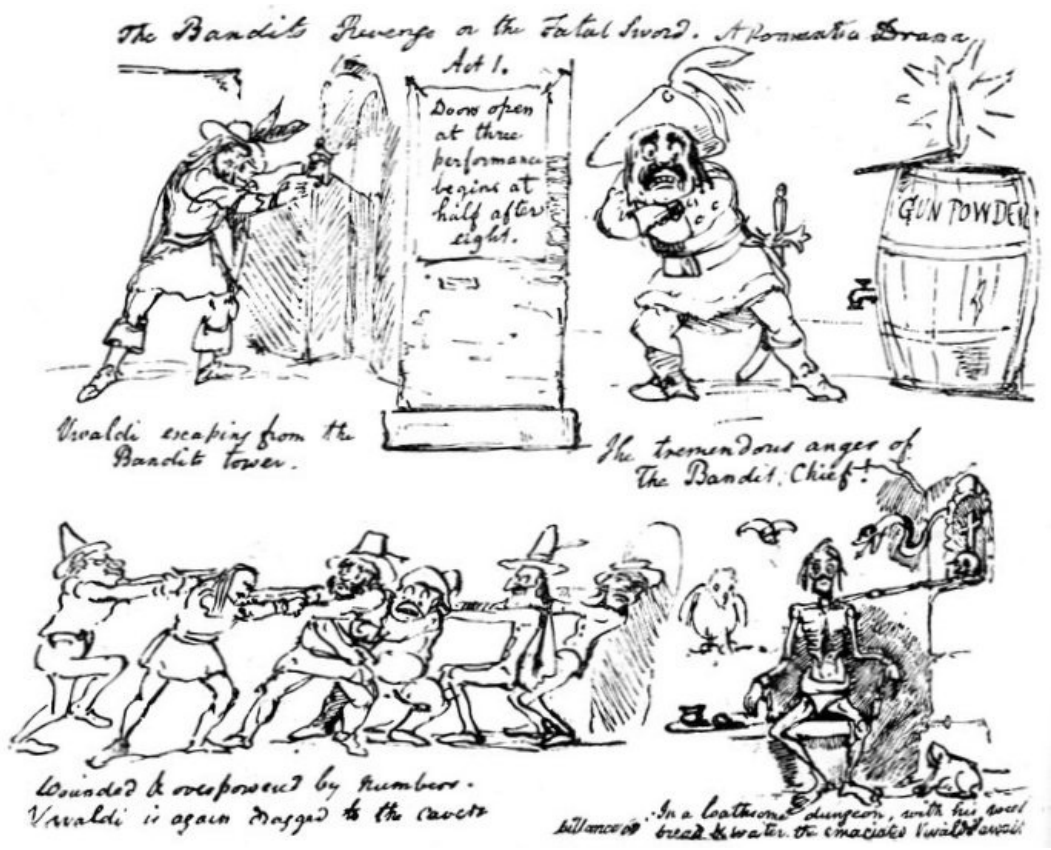 The Bandits Revenge or the Fatal Sword. A Romantic Drama
Act 1.
Doors open
at three
performance
begins at
half after
eight.
GUN POWDER
Vivaldi escaping from the
Bandits tower.
The tremendous anger of
The Bandit Chief!
Wounded & overpowered by numbers.
Vivaldi is again dragged to the cavern
In a loathsome dungeon, with his
bread & water the emaciated Vivaldi